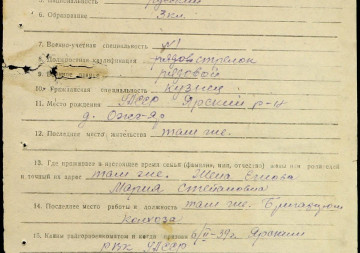 6. Образование 3 кл.
7. Военно-учетная специальность №1
8. квалификация рядов стрелок
9. рядовой
10. Гражданская специальность кузнец
11. Место рождения УАССР Ярский р-н
д.
12. Последнее место жительства там же.
13. Где проживает в настоящее время семья (фамилия, имя, отчество) жены или родителей
и точный их адрес там же. Жена
Мария Степановна
14. Последнее место работы и должность там же. Бригадир
колхоза
15. Каким райвоенкоматом и когда призван Ярским
РВК УАССР